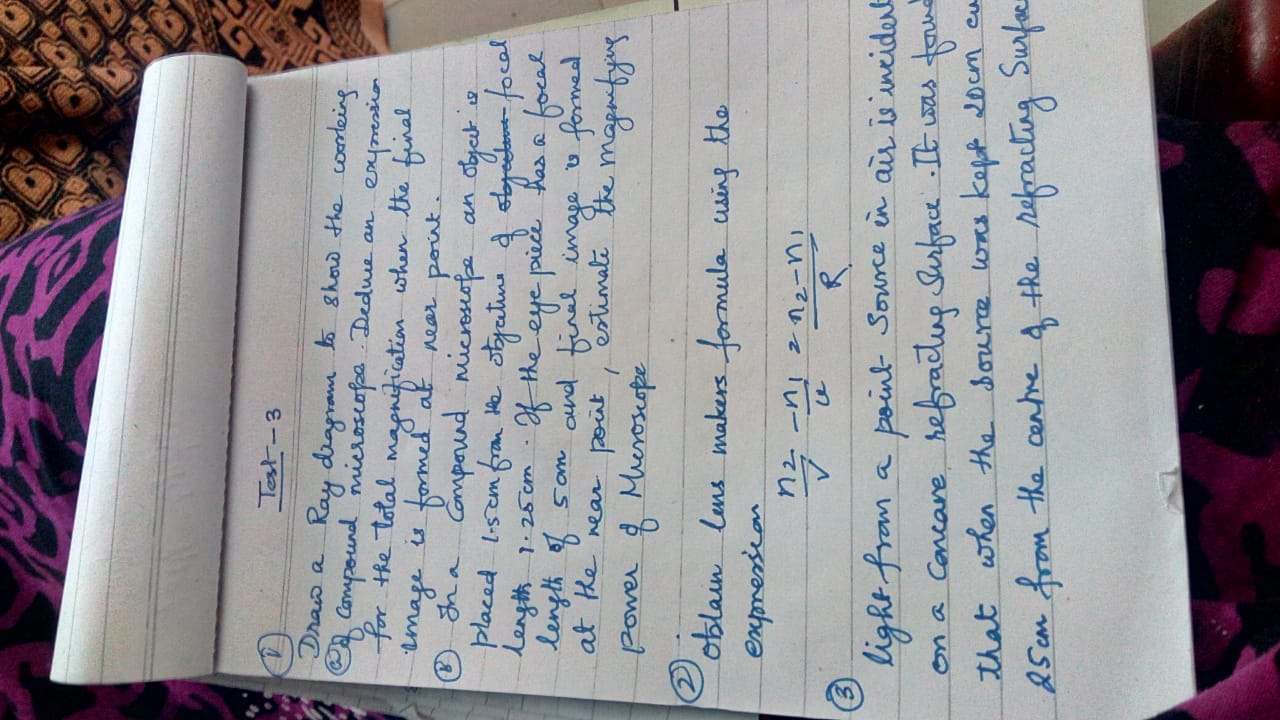 Test-3
①
Draw a Ray diagram to show the working
ⓐ of Compound microscope. Deduce an expression
for the total magnification when the final
image is formed at near point.
Ⓑ In a Compound microscope an object is
placed 1.5cm from the objective of objective focal
length 1.25cm. If the eye piece has a focal
length of 5cm and final image is formed
at the near point, estimate the magnifying
power of Microscope
②
obtain lens makers formula using the
expression
n2/v - n1/u = n2-n1/R
③
light from a point Source in air is incident
on a Concave refracting Surface. It was found
that when the source was kept 20cm
25cm from the centre of the refracting Surfac